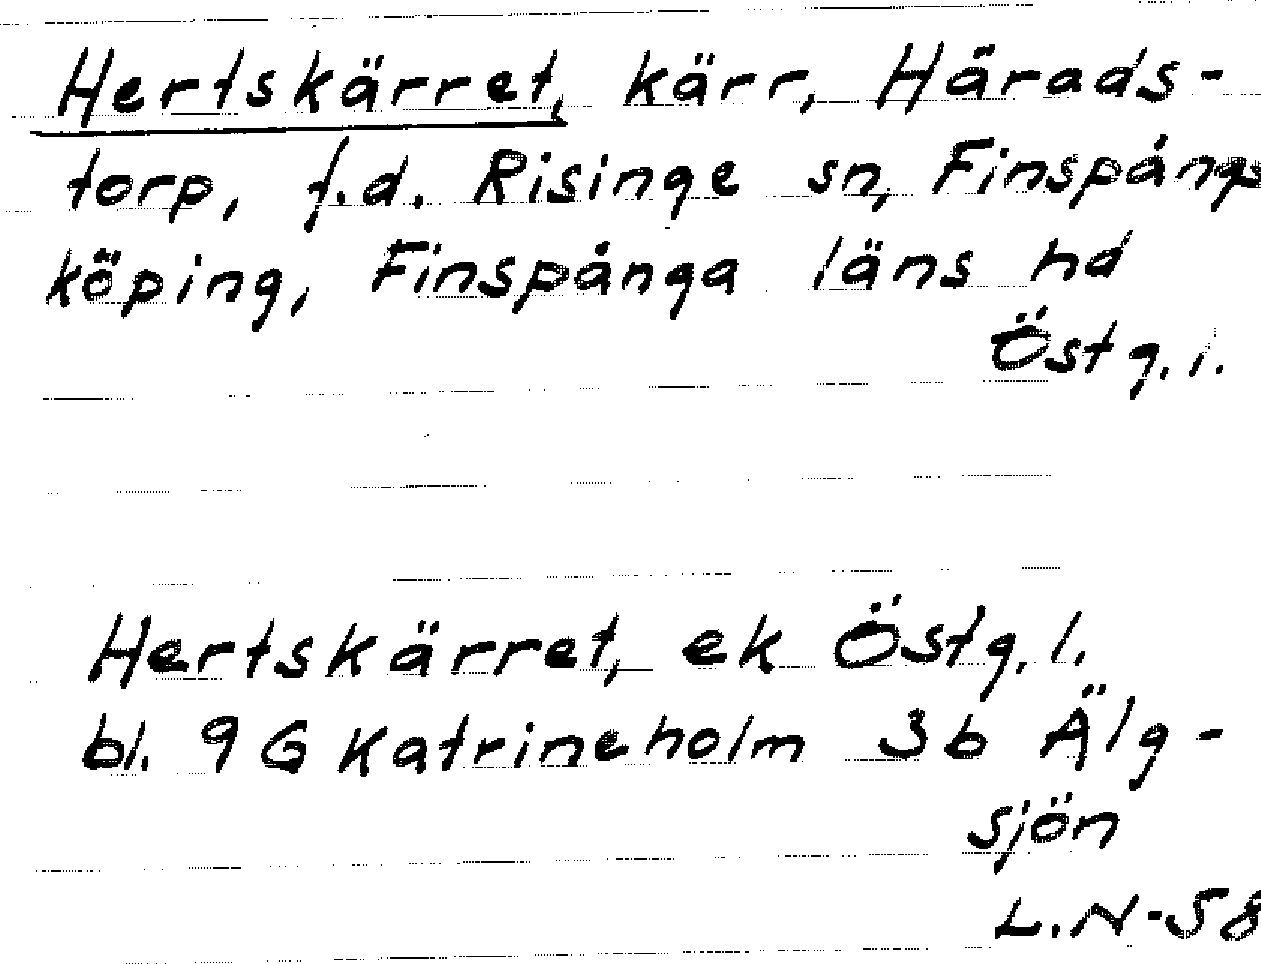 Hertskärret, kärr, Härads-
torp, f.d. Risinge sn, Finspångs
köping, Finspånga läns hd
Östg. l.
Hertskärret, ek Östg. l.
bl. 9 G Katrineholm 3b Älg-
sjön
L.N-58